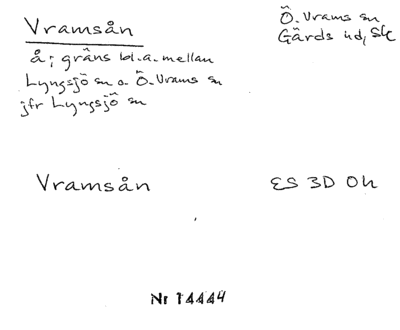 Vramsån
Ö. Vrams sn
Gärds hd, Sk
å; gräns bl.a. mellan
Lyngsjö sn o. Ö. Vrams sn
jfr Lyngsjö sn
Vramsån
ES 3D 0h
Nr 14444